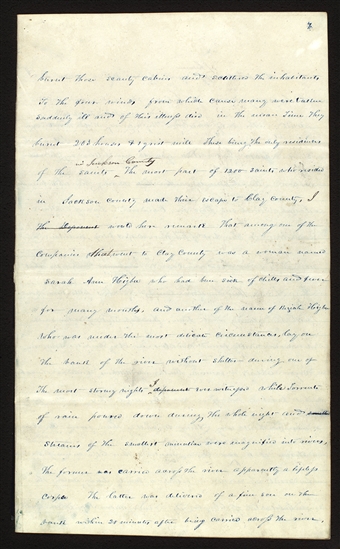 7
burnt these scanty cabins and scattered the inhabitants
to the four winds from which cause many were taken
suddenly ill and of this illness died in the mean time they
burnt 203 houses & 1 grist mill these being the only residences
in Jackson County
of the saints The most part of 1200 saints who resided
in Jackson County made their escape to Clay County, I
the deponent would here remark That among one of the
companies that went to Clay County was a woman named
Sarah Ann Higbee who had been sick of chills and fever
for many months, and another of the name of Keziah Higbee
who was under the most delicate circumstances, lay on
the bank of the river without shelter during one of
The most stormy nights I deponent ever witnessed while torrents
of rain poured down during the whole night and
streams of the smallest were magnified into rivers,
The former was carried across the river apparently a lifeless
corpse The latter was delivered of a fine son on the
bank within 20 minutes after being carried across the river,